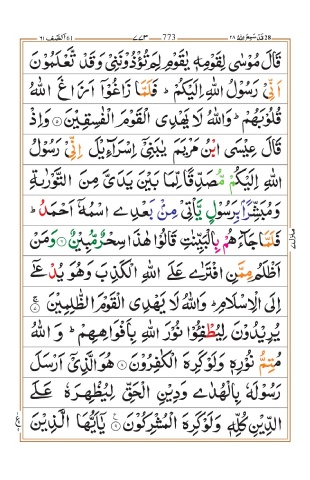 قَدْ سَمِعَ اللّٰهُ ٢٨ 773 ٧٧٣ الصَّفّ ٦١
قَالَ مُوْسٰى لِقَوْمِهٖ يٰقَوْمِ لِمَ تُؤْذُوْنَنِىْ وَقَدْ تَّعْلَمُوْنَ
اَنِّىْ رَسُوْلُ اللّٰهِ اِلَيْكُمْ ؕ فَلَمَّا زَاغُوْۤا اَزَاغَ اللّٰهُ
قُلُوْبَهُمْ ؕ وَاللّٰهُ لَا يَهْدِى الْقَوْمَ الْفٰسِقِيْنَ ۝٥ وَاِذْ
قَالَ عِيْسَى ابْنُ مَرْيَمَ يٰبَنِىْۤ اِسْرَآءِيْلَ اِنِّىْ رَسُوْلُ
اللّٰهِ اِلَيْكُمْ مُّصَدِّقًا لِّمَا بَيْنَ يَدَىَّ مِنَ التَّوْرٰىةِ
وَمُبَشِّرًۢا بِرَسُوْلٍ يَّاْتِىْ مِنْۢ بَعْدِى اسْمُهٗۤ اَحْمَدُ ؕ
فَلَمَّا جَآءَهُمْ بِالْبَيِّنٰتِ قَالُوْا هٰذَا سِحْرٌ مُّبِيْنٌ ۝٦ وَمَنْ
اَظْلَمُ مِمَّنِ افْتَرٰى عَلَى اللّٰهِ الْكَذِبَ وَهُوَ يُدْعٰۤى
اِلَى الْاِسْلَامِ ؕ وَاللّٰهُ لَا يَهْدِى الْقَوْمَ الظّٰلِمِيْنَ ۝٧
يُرِيْدُوْنَ لِيُطْفِـُٔوْا نُوْرَ اللّٰهِ بِاَفْوَاهِهِمْ ؕ وَاللّٰهُ
مُتِمُّ نُوْرِهٖ وَلَوْ كَرِهَ الْكٰفِرُوْنَ ۝٨ هُوَ الَّذِىْۤ اَرْسَلَ
رَسُوْلَهٗ بِالْهُدٰى وَدِيْنِ الْحَقِّ لِيُظْهِرَهٗ عَلَى
الدِّيْنِ كُلِّهٖ وَلَوْ كَرِهَ الْمُشْرِكُوْنَ ۝٩ يٰۤاَيُّهَا الَّذِيْنَ